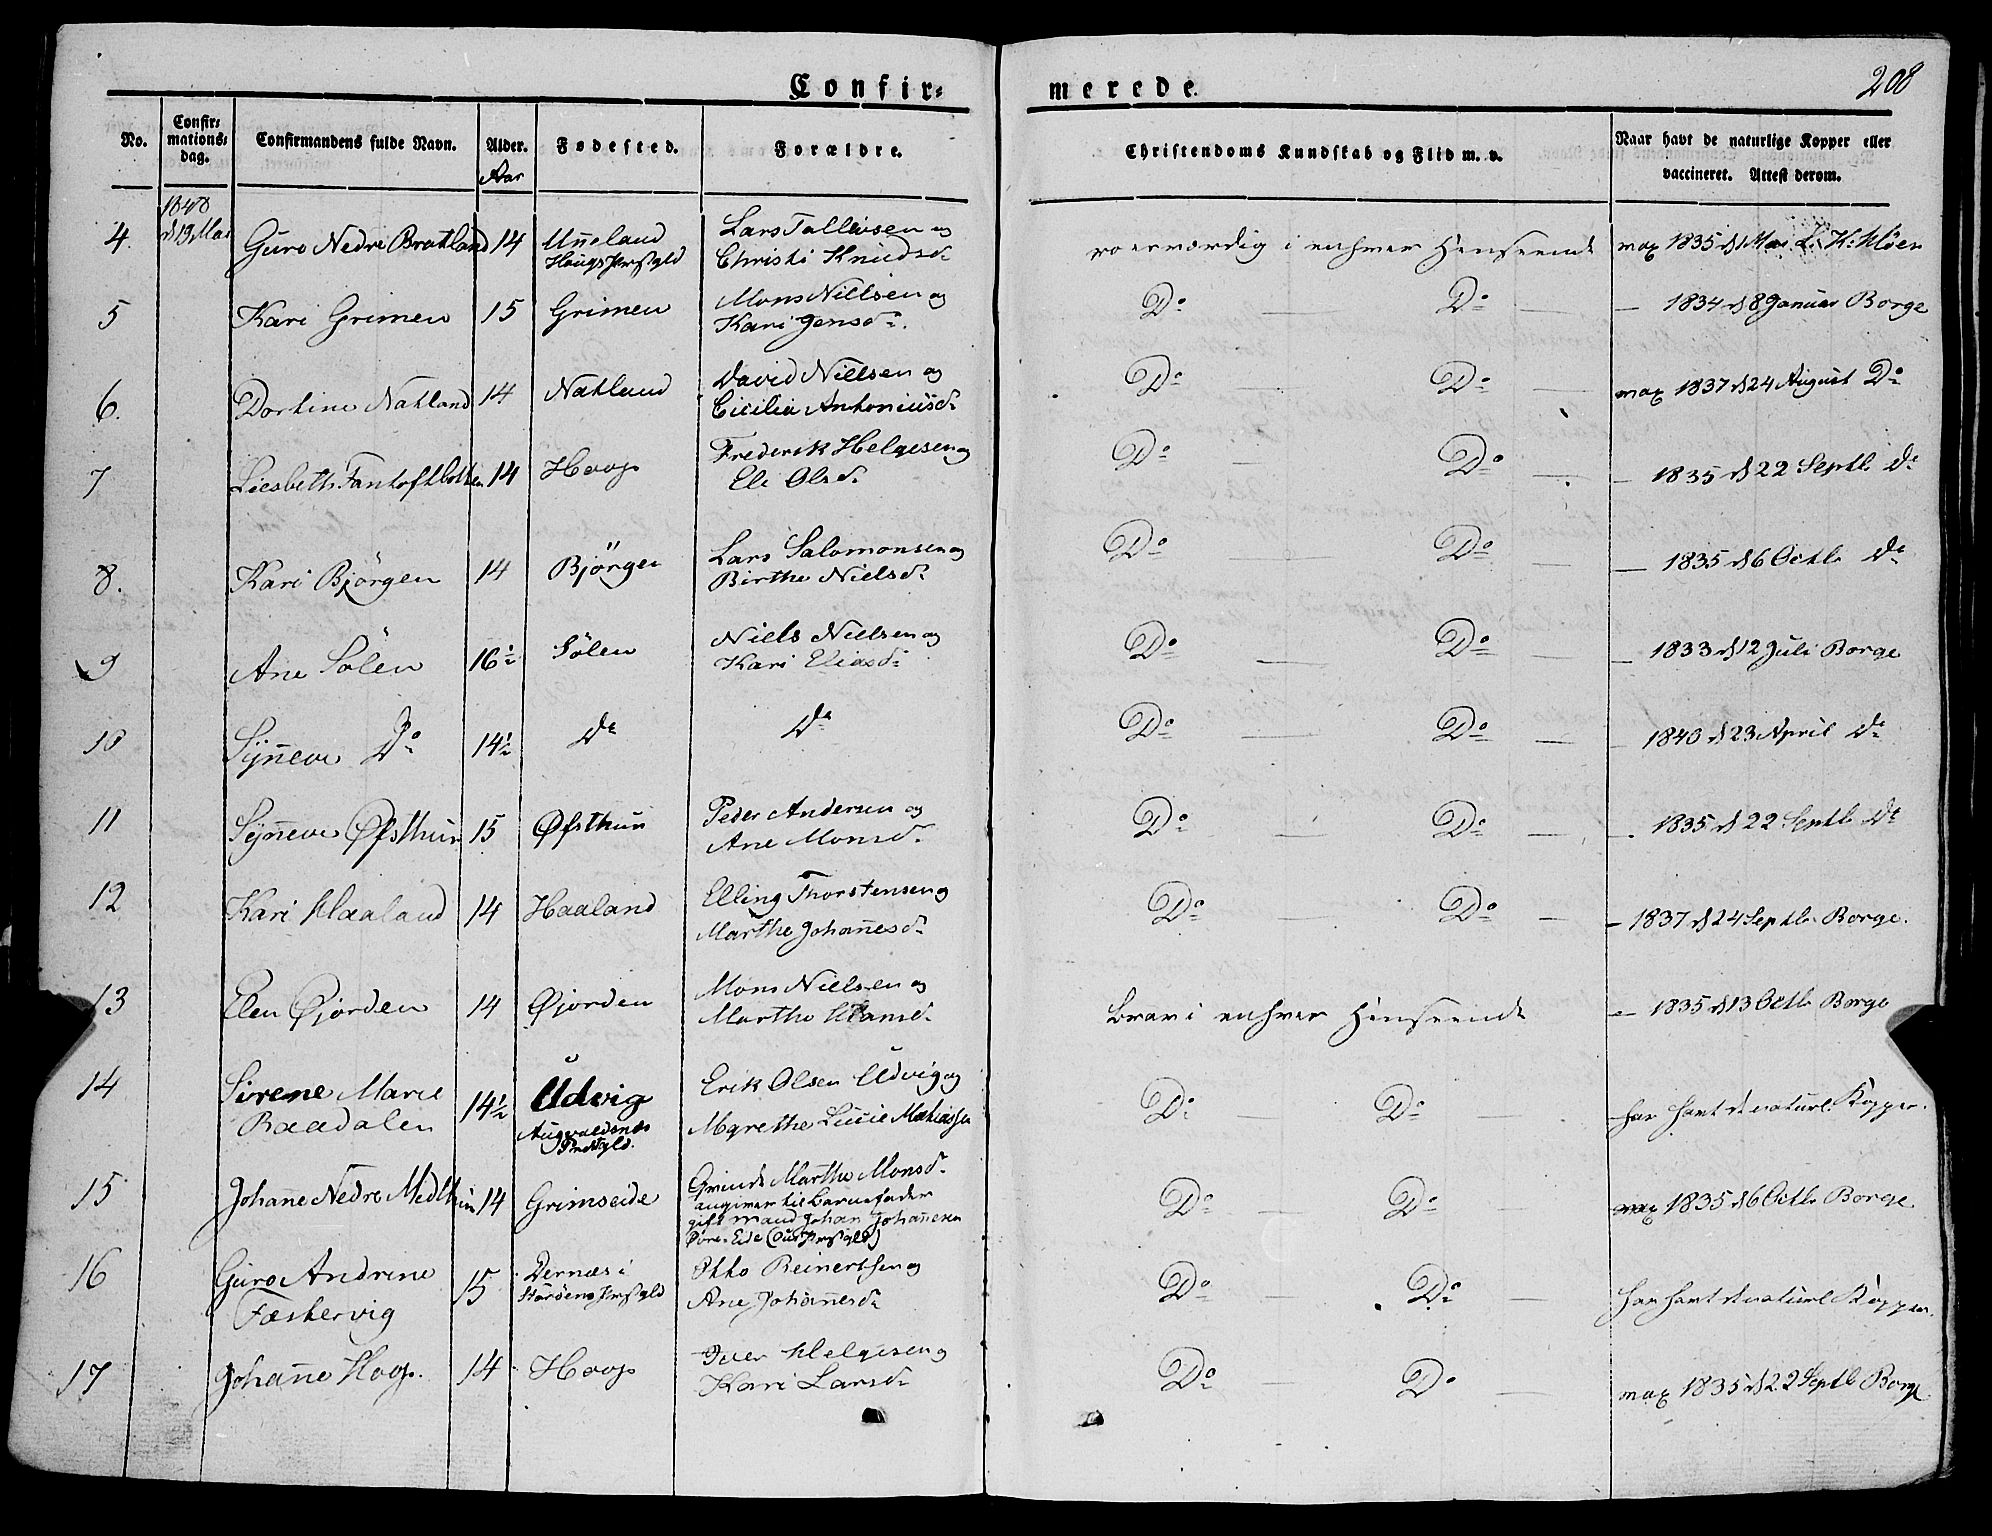 Confir= merede.
208
No. Confir= mations= dag. Confirmandens fulde Navn. Alder. Fødested. Forældre. Christendoms Kundskab og Flid m. v. Naar havt de naturlige Kopper eller vaccineret. Attest derom.
Aar
1848
4. d 19 Mai Guro Nedre Bratland 14 Unneland Lars Tollevsen og Christi Knudsd: roesværdig i enhver Henseende vax 1835 d 1 Mai
5 Kari Grimen 15 Grimen Mons Nielsen og Kari Jensd: Do — Do — — 1834 d 8 Januar Borge
6. Dorthine Natland 14 Natland David Nielsen og Cicilia Antoniusd: Do — Do — vax 1837 d 24 August Do
7 Liesbeth Fantoftbotten 14 Hoop Frederik Helgesen og Eli Olsd: Do — Do — — 1835 d 22 Septb. Do
8. Kari Bjørgen 14 Bjørgen Lars Salomonsen og Birthe Nielsd: Do — Do — — 1835 d 6 Octb Do
9 Ane Sølen 16½ Sølen Niels Nielsen og Kari Eliasd: Do — Do — — 1833 d 12 Juli Borge
10 Synneve Do 14½ Do Do Do — Do — — 1840 d 23 April Do
11 Synneve Øfsthun 15 Øfsthun Peder Andersen og Ane Monsd: Do — Do — — 1835 d 22 Septb Do
12 Kari Haaland 14 Haaland Elling Thorstensen og Marthe Johannesd: Do — Do — — 1837 d 24 Septb. Borge.
13 Elen Øjorden 14 Øjorden Mons Nielsen og Marthe Hansd: brav i enhver Henseende — 1835 d 13 Octb Borge
14 Sirene Marie Raadalen 14½ Udvig Augvaldsnes Prstgld. Erik Olsen Udvig og Mgrethe Lucie Do — Do — har havt de naturl. Kopper.
15 Johanne Nedre Midthun 14 Grimseide Marthe Monsd: angiver til Barnefader gift Mand Johan Johannesen Do — Do — vax 1835 d 6 Octb. Borge
16 Guro Andrine Fæstervig 15 Otto Reinertsen og Ane Johannesd: Do — Do — har havt de naturl Kopper.
17 Johanne Hoop. 14 Hoop Iver Helgesen og Kari Larsd: Do — Do — vax 1835 d 22 Septb Borge